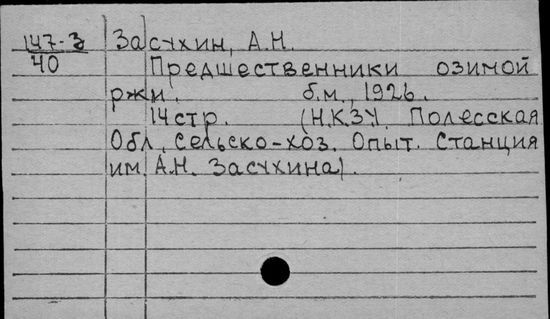 147-3 Засухин, А.Н.
40 Предшественники озимой
ржи. б.м., 1926.
14 стр. (Н.К.З.У. Полесская
Обл. Сельско-хоз. Опыт. Станция
им. А.Н. Засухина).